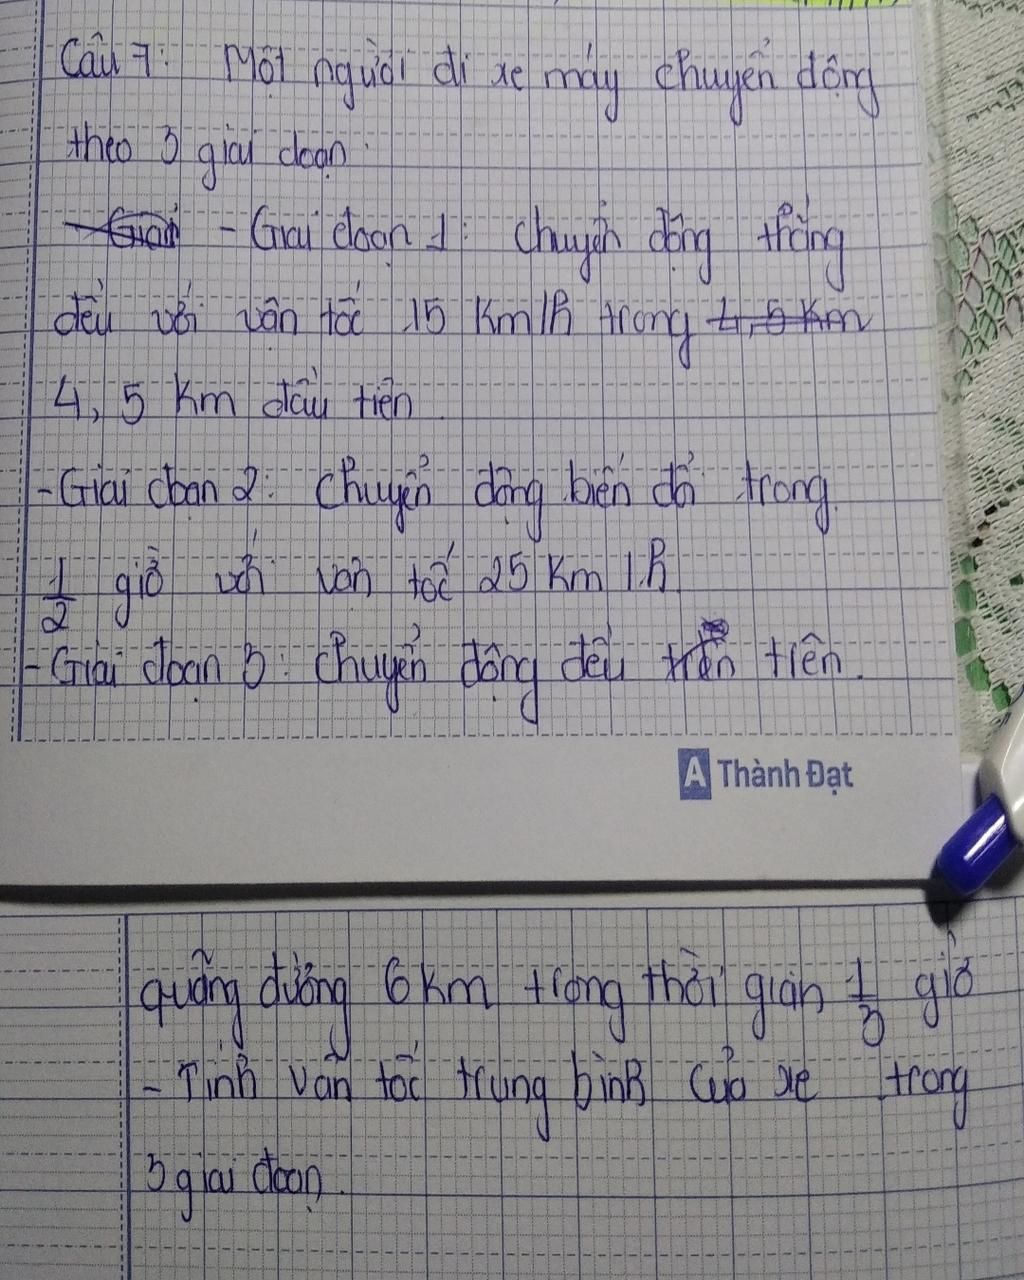 Câu 7: Một người đi xe máy chuyển động
theo 3 giai đoạn:
- Giai đoạn 1: chuyển động thẳng
đều với vận tốc 15 Km/h trong 4,5 Km
4,5 Km đầu tiên
- Giai đoạn 2: chuyển động biến đổi trong
1/2 giờ với vận tốc 25 Km/h
- Giai đoạn 3: chuyển động đều trên tiên.
A Thành Đạt
quãng đường 6 Km trong thời gian 1/3 giờ
- Tính vận tốc trung bình của xe trong
3 giai đoạn.